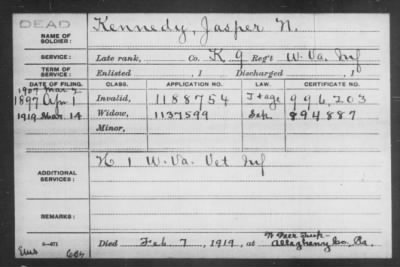 DEAD
NAME OF SOLDIER: Kennedy, Jasper N.
SERVICE: Late rank, Co. K 9 Reg't W. Va. Inf
TERM OF SERVICE: Enlisted , 1 Discharged , 1
DATE OF FILING. CLASS. APPLICATION NO. LAW. CERTIFICATE NO.
1907 Mar 2
1897 Apr 1 Invalid, 1188754 J + age 996,203
1919 Mar 14 Widow, 1137599 Sep. 894887
Minor,
ADDITIONAL SERVICES: K 1 W. Va. Vet Inf
REMARKS:
Died Feb 7, 1919, at Allegheny Co, Pa.